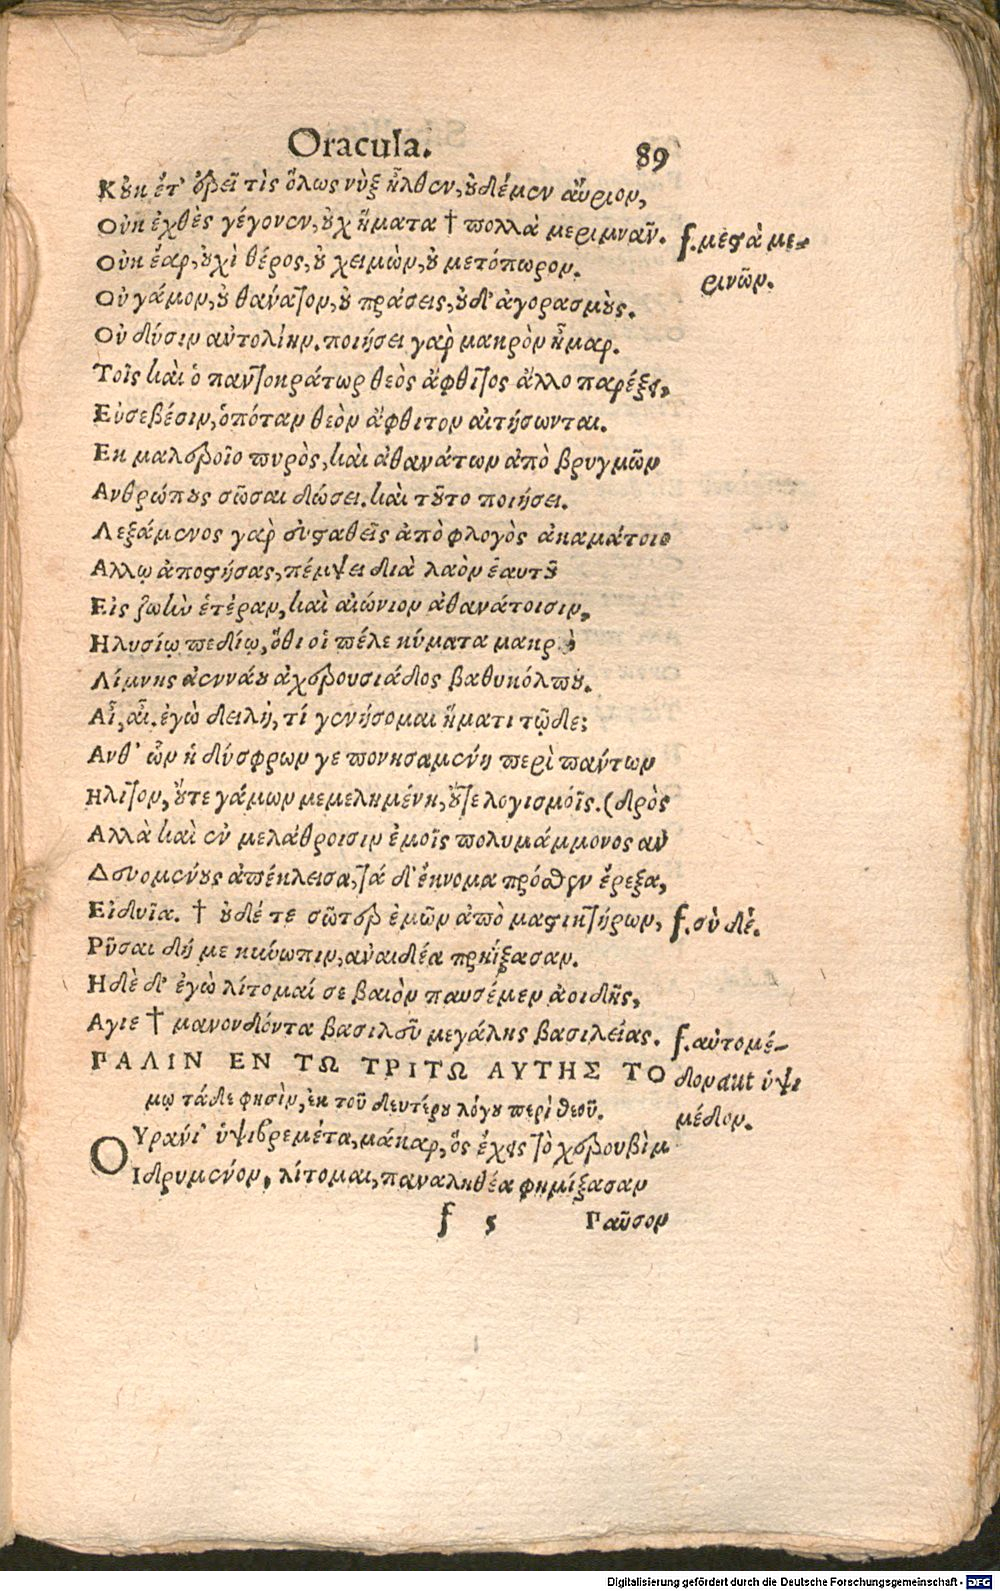 Oracula. 89
Κοὐκ ἔτ' ἐρεῖ τὶς ὅλως νὺξ ἦλθεν, οὐδέμεν αὔριον,
Οὐκ ἐχθὲς γέγονεν, οὐχ ἥματα † πολλὰ μεριμνᾶν.
f. μεστὰ με-
ριμνῶν.
Οὐκ ἔαρ, οὐχὶ θέρος, οὐ χειμὼν, οὐ μετόπωρον.
Οὐ γάμον, οὐ θάνατον, οὐ πράσεις, οὐδ' ἀγορασμοὺς.
Οὐ δύσιν αὐτολίην. ποιήσει γὰρ μακρὸν ἦμαρ.
Τοῖς καὶ ὁ παντοκράτωρ θεὸς ἄφθιτος ἄλλο παρέξει,
Εὐσεβέσιν, ὁπόταν θεὸν ἄφθιτον αἰτήσωνται.
Εκ μαλεροῖο πυρὸς, καὶ ἀθανάτων ἀπὸ βρυγμῶν
Ανθρώπους σῶσαι δώσει. καὶ τοῦτο ποιήσει.
Λεξάμενος γὰρ εὐσταθεῖς ἀπὸ φλογὸς ἀκαμάτοιο
Αλλῳ ἀποστήσας, πέμψει διὰ λαὸν ἑαυτοῦ
Εἰς ζωὴν ἑτέραν, καὶ αἰώνιον ἀθανάτοισιν,
Ηλυσίῳ πεδίῳ, ὅθι οἱ πέλε κύματα μακρὰ
Λίμνης ἀεννάου ἀχερουσιάδος βαθυκόλπου.
Αἶ, αἶ. ἐγὼ δειλὴ, τί γενήσομαι ἥματι τῷδε;
Ανθ' ὧν ἡ δύσφρων γε πονησαμένη περὶ πάντων
Ηλιτον, οὔτε γάμων μεμελημένη, οὔτε λογισμοῖς. (δρὸς
Αλλὰ καὶ ἐν μελάθροισιν ἐμοῖς πολυμάμμονος ἀν
Δευομένους ἀπέκλεισα, τά δ' ἔκνομα πρόσθεν ἔρεξα,
Εἰδυῖα. † οὐδέ τε σῶτερ ἐμῶν ἀπὸ μαστικτήρων,
f. σὺ δὲ.
Ρῦσαι δή με κυνῶπιν, ἀναιδέα πρηΐξασαν.
Ηδὲ δ' ἐγὼ λίτομαί σε βαιὸν παυσέμεν ἀοιδῆς,
Αγιε † μανονδόντα βασιλεῦ μεγάλης βασιλείας.
f. αὐτομέ-
δον aut ὑψι
μέδον.
ΠΑΛΙΝ ΕΝ ΤΩ ΤΡΙΤΩ ΑΥΤΗΣ ΤΟ
μῳ τάδε φησὶν, ἐκ τοῦ δευτέρου λόγου περὶ θεοῦ.
ΟΥρανί' ὑψιβρεμέτα, μάκαρ, ὃς ἔχεις τὸ χερουβὶμ
Ιδρυμένον, λίτομαι, παναληθέα φημίξασαν
f 5 Παῦσον
Digitalisierung gefördert durch die Deutsche Forschungsgemeinschaft - DFG